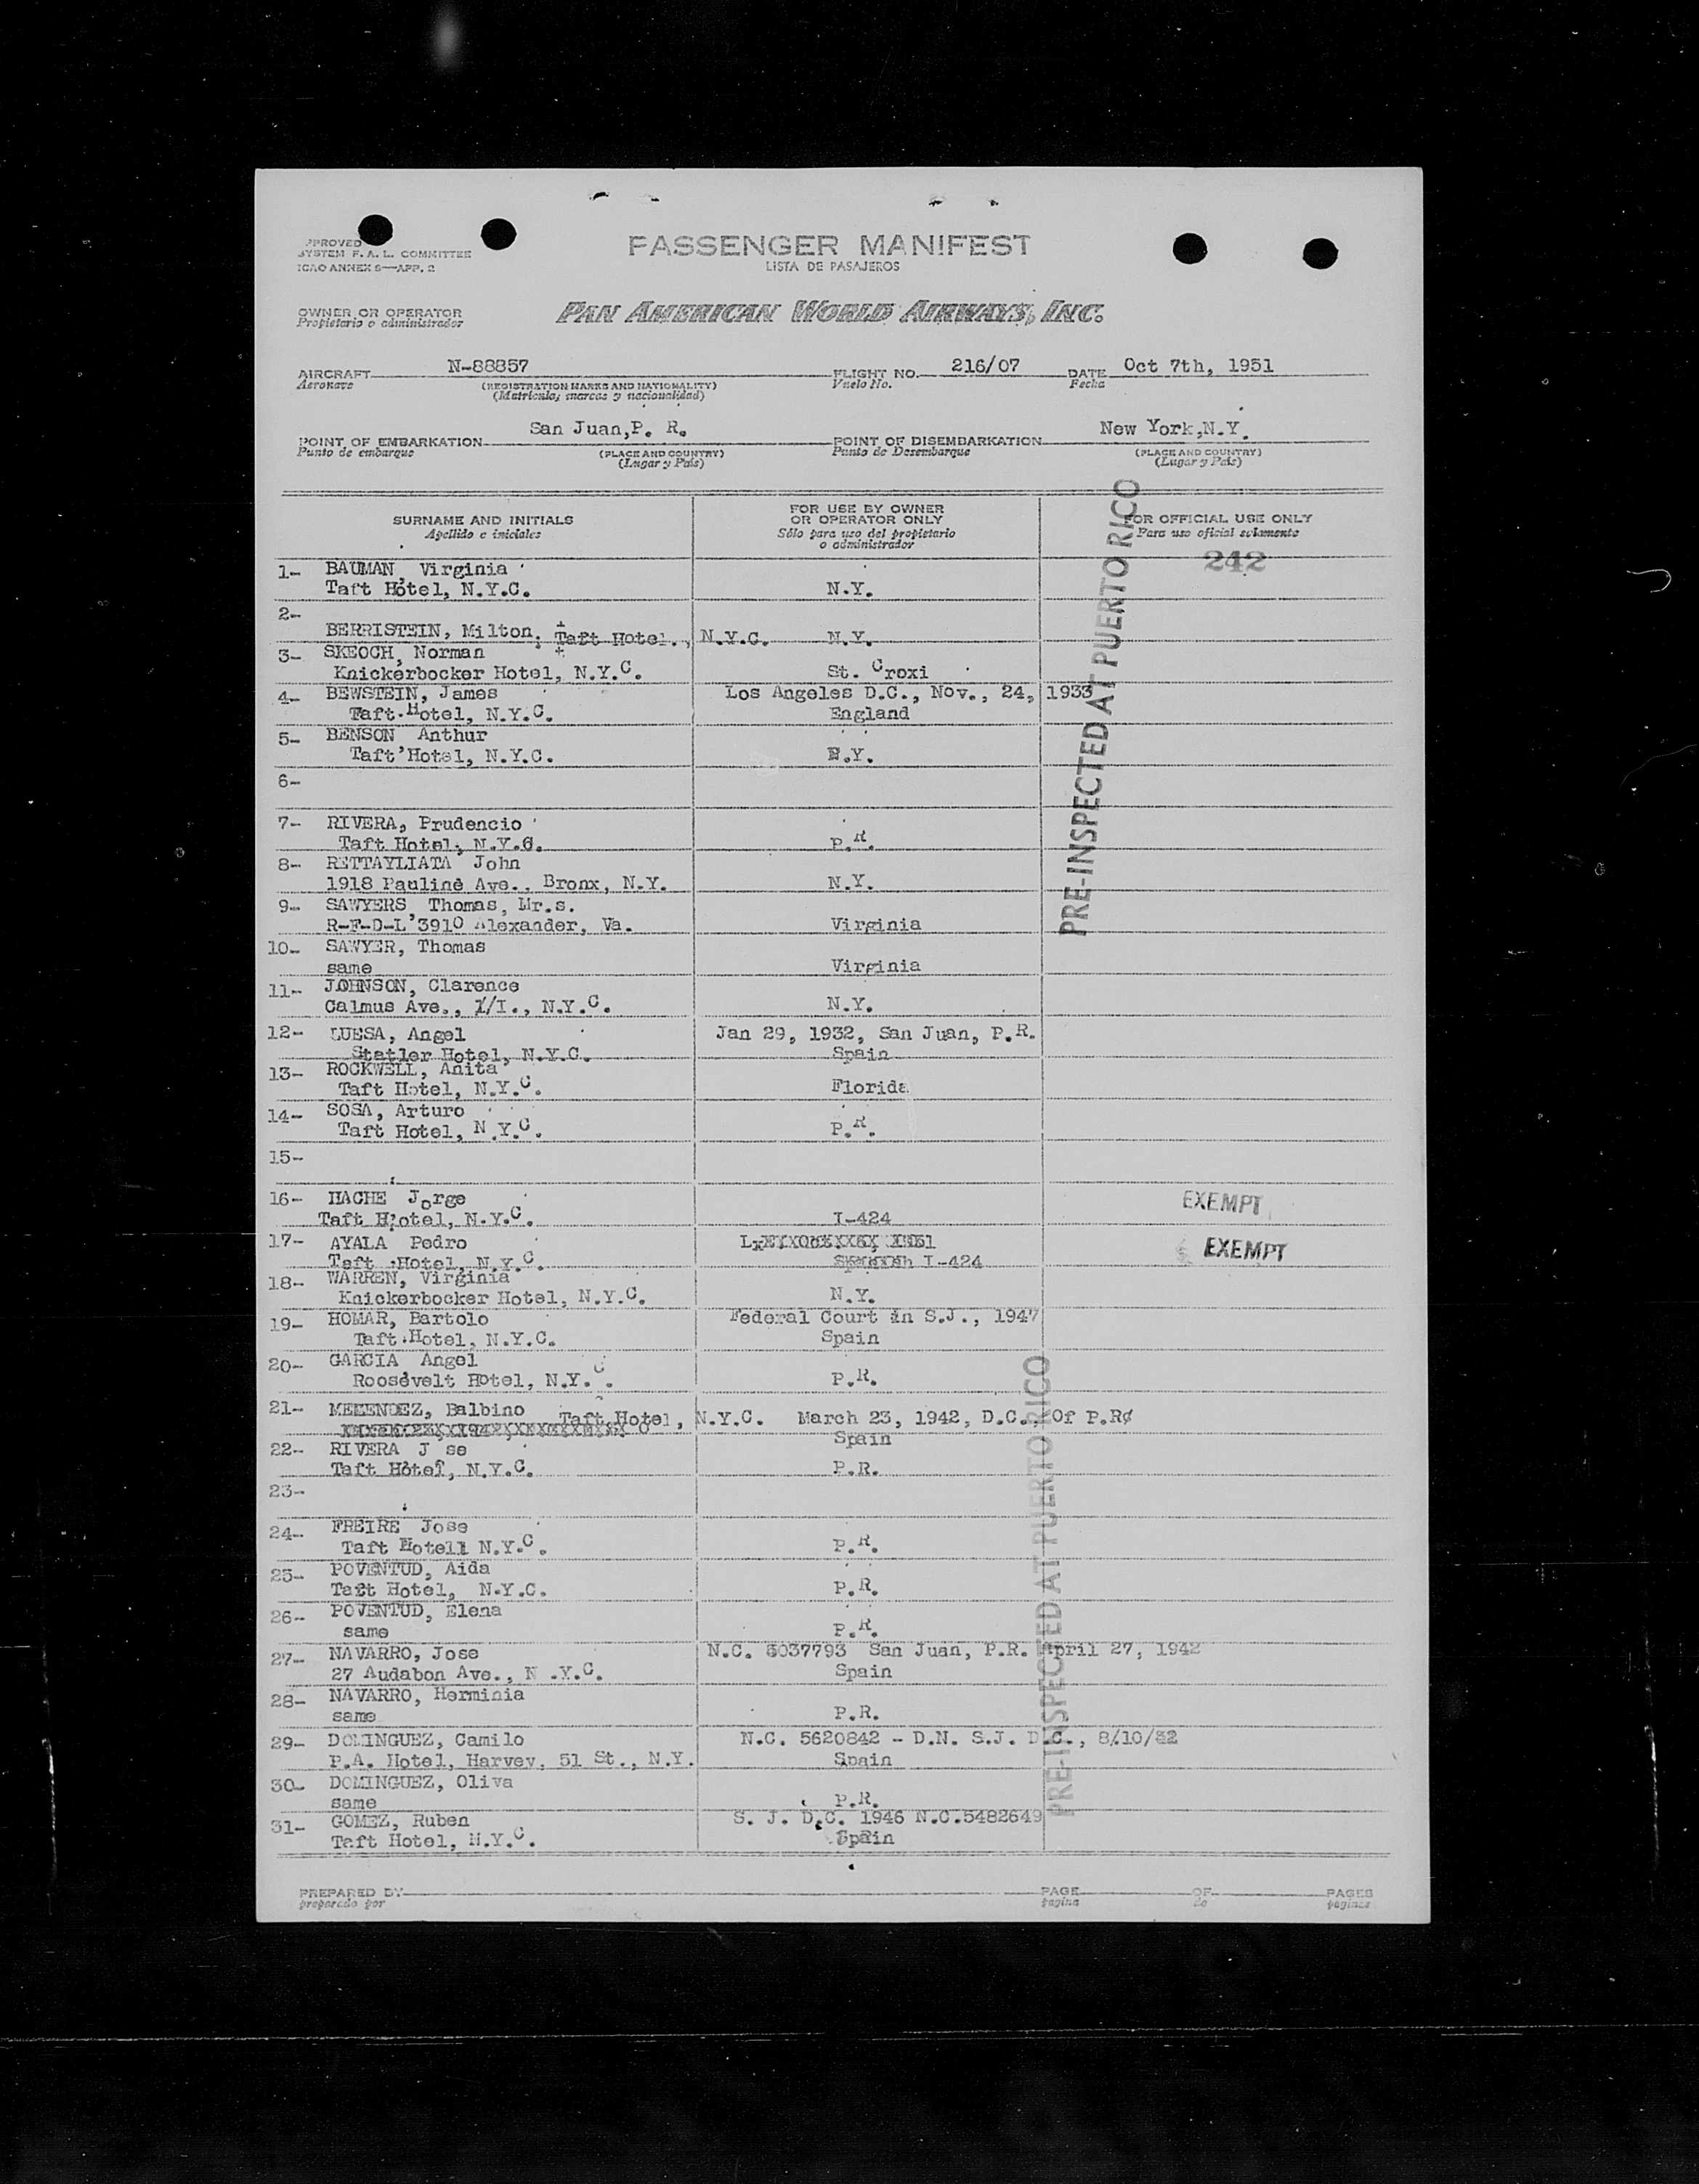 PPROVED
SYSTEM F. A. L. COMMITTEE
ICAO ANNEX 9—APP. 2
PASSENGER MANIFEST
LISTA DE PASAJEROS
OWNER OR OPERATOR
Propietario o administrador
PAN AMERICAN WORLD AIRWAYS, INC.
AIRCRAFT N-88857 FLIGHT NO. 216/07 DATE Oct 7th, 1951
Aeronave (REGISTRATION MARKS AND NATIONALITY) Vuelo No. Fecha
(Matricula, marcas y nacionalidad)
POINT OF EMBARKATION San Juan,P. R. POINT OF DISEMBARKATION New York,N.Y.
Punto de embarque (PLACE AND COUNTRY) Punto de Desembarque (PLACE AND COUNTRY)
(Lugar y País) (Lugar y País)
SURNAME AND INITIALS FOR USE BY OWNER OR OPERATOR ONLY FOR OFFICIAL USE ONLY
Apellido e iniciales Sólo para uso del propietario o administrador Para uso oficial solamente
242
PRE-INSPECTED AT PUERTO RICO
1- BAUMAN, Virginia
Taft Hotel, N.Y.C. N.Y.
2-
BERRISTEIN, Milton, Taft Hotel., N.Y.C. N.Y.
3- SKEOCH, Norman
Knickerbocker Hotel, N.Y.C. St. Croxi
4- BEWSTEIN, James Los Angeles D.C., Nov., 24, 1933
Taft Hotel, N.Y.C. England
5- BENSON Anthur
Taft Hotel, N.Y.C. N.Y.
6-
7- RIVERA, Prudencio
Taft Hotel, N.Y.C. P.R.
8- RETTAYLIATA John
1918 Pauline Ave., Bronx, N.Y. N.Y.
9- SAWYERS, Thomas, Mr.s.
R-F-D-L 3910 Alexander, Va. Virginia
10- SAWYER, Thomas
same Virginia
11- JOHNSON, Clarence
Calmus Ave., L/I., N.Y.C. N.Y.
12- LUESA, Angel Jan 29, 1932, San Juan, P.R.
Statler Hotel, N.Y.C. Spain
13- ROCKWELL, Anita
Taft Hotel, N.Y.C. Florida
14- SOSA, Arturo
Taft Hotel, N.Y.C. P.R.
15-
16- HACHE Jorge EXEMPT
Taft Hotel, N.Y.C. I-424
17- AYALA Pedro EXEMPT
Taft Hotel, N.Y.C. I-424
18- WARREN, Virginia
Knickerbocker Hotel, N.Y.C. N.Y.
19- HOMAR, Bartolo Federal Court in S.J., 1947
Taft Hotel, N.Y.C. Spain
20- GARCIA Angel
Roosevelt Hotel, N.Y.C. P.R.
21- MELENDEZ, Balbino Taft Hotel, N.Y.C. March 23, 1942, D.C., Of P.R
Spain
22- RIVERA J se
Taft Hotel, N.Y.C. P.R.
23-
24- FREIRE Jose
Taft Hotell N.Y.C. P.R.
25- POVENTUD, Aida
Taft Hotel, N.Y.C. P.R.
26- POVENTUD, Elena
same P.R.
27- NAVARRO, Jose N.C. 6037793 San Juan, P.R. April 27, 1942
27 Audabon Ave., N.Y.C. Spain
28- NAVARRO, Herminia
same P.R.
29- DOMINGUEZ, Camilo N.C. 5620842 - D.N. S.J. D.C., 8/10/
P.A. Hotel, Harvey, 51 St., N.Y. Spain
30- DOMINGUEZ, Oliva
same P.R.
31- GOMEZ, Ruben S. J. D.C. 1946 N.C.5482649
Taft Hotel, N.Y.C. Spain
PRE-INSPECTED AT PUERTO RICO
PREPARED BY PAGE OF PAGES
preparado por pagina de paginas